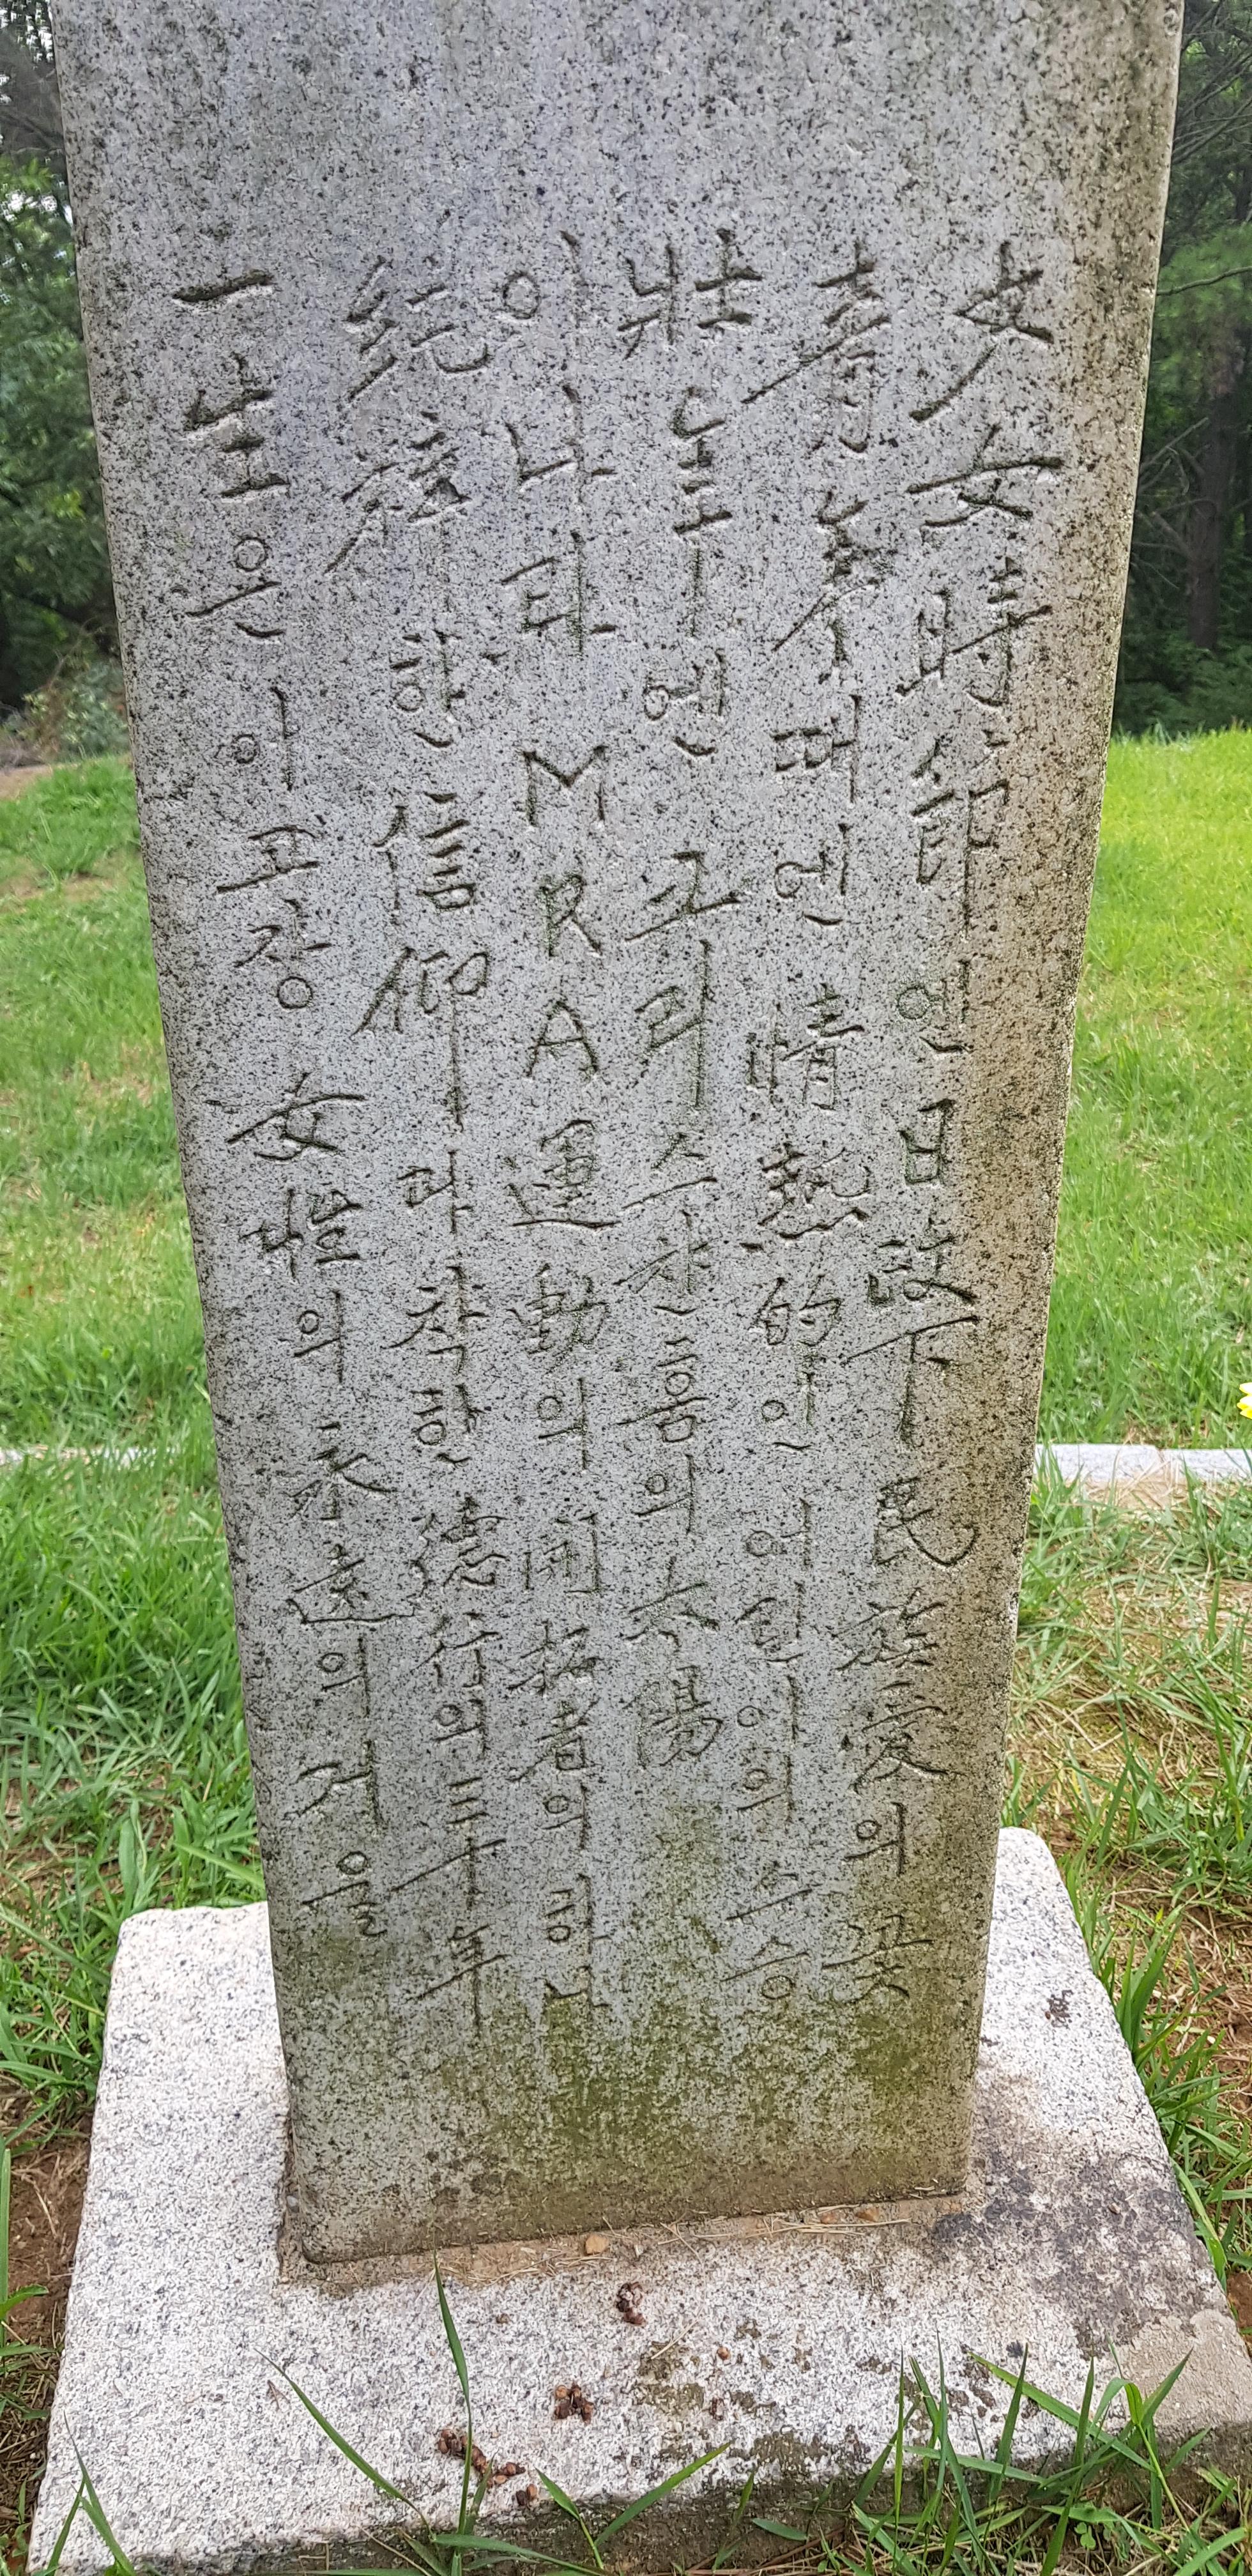 少女時節엔日政下民族愛의꽃
靑年때엔情熱的인어린이의스승
壯年엔크리스챤홈의太陽
이나라MRA運動의開拓者의하나
純粹한信仰과착한德行의五十年
一生은이고장女性의永遠의거울